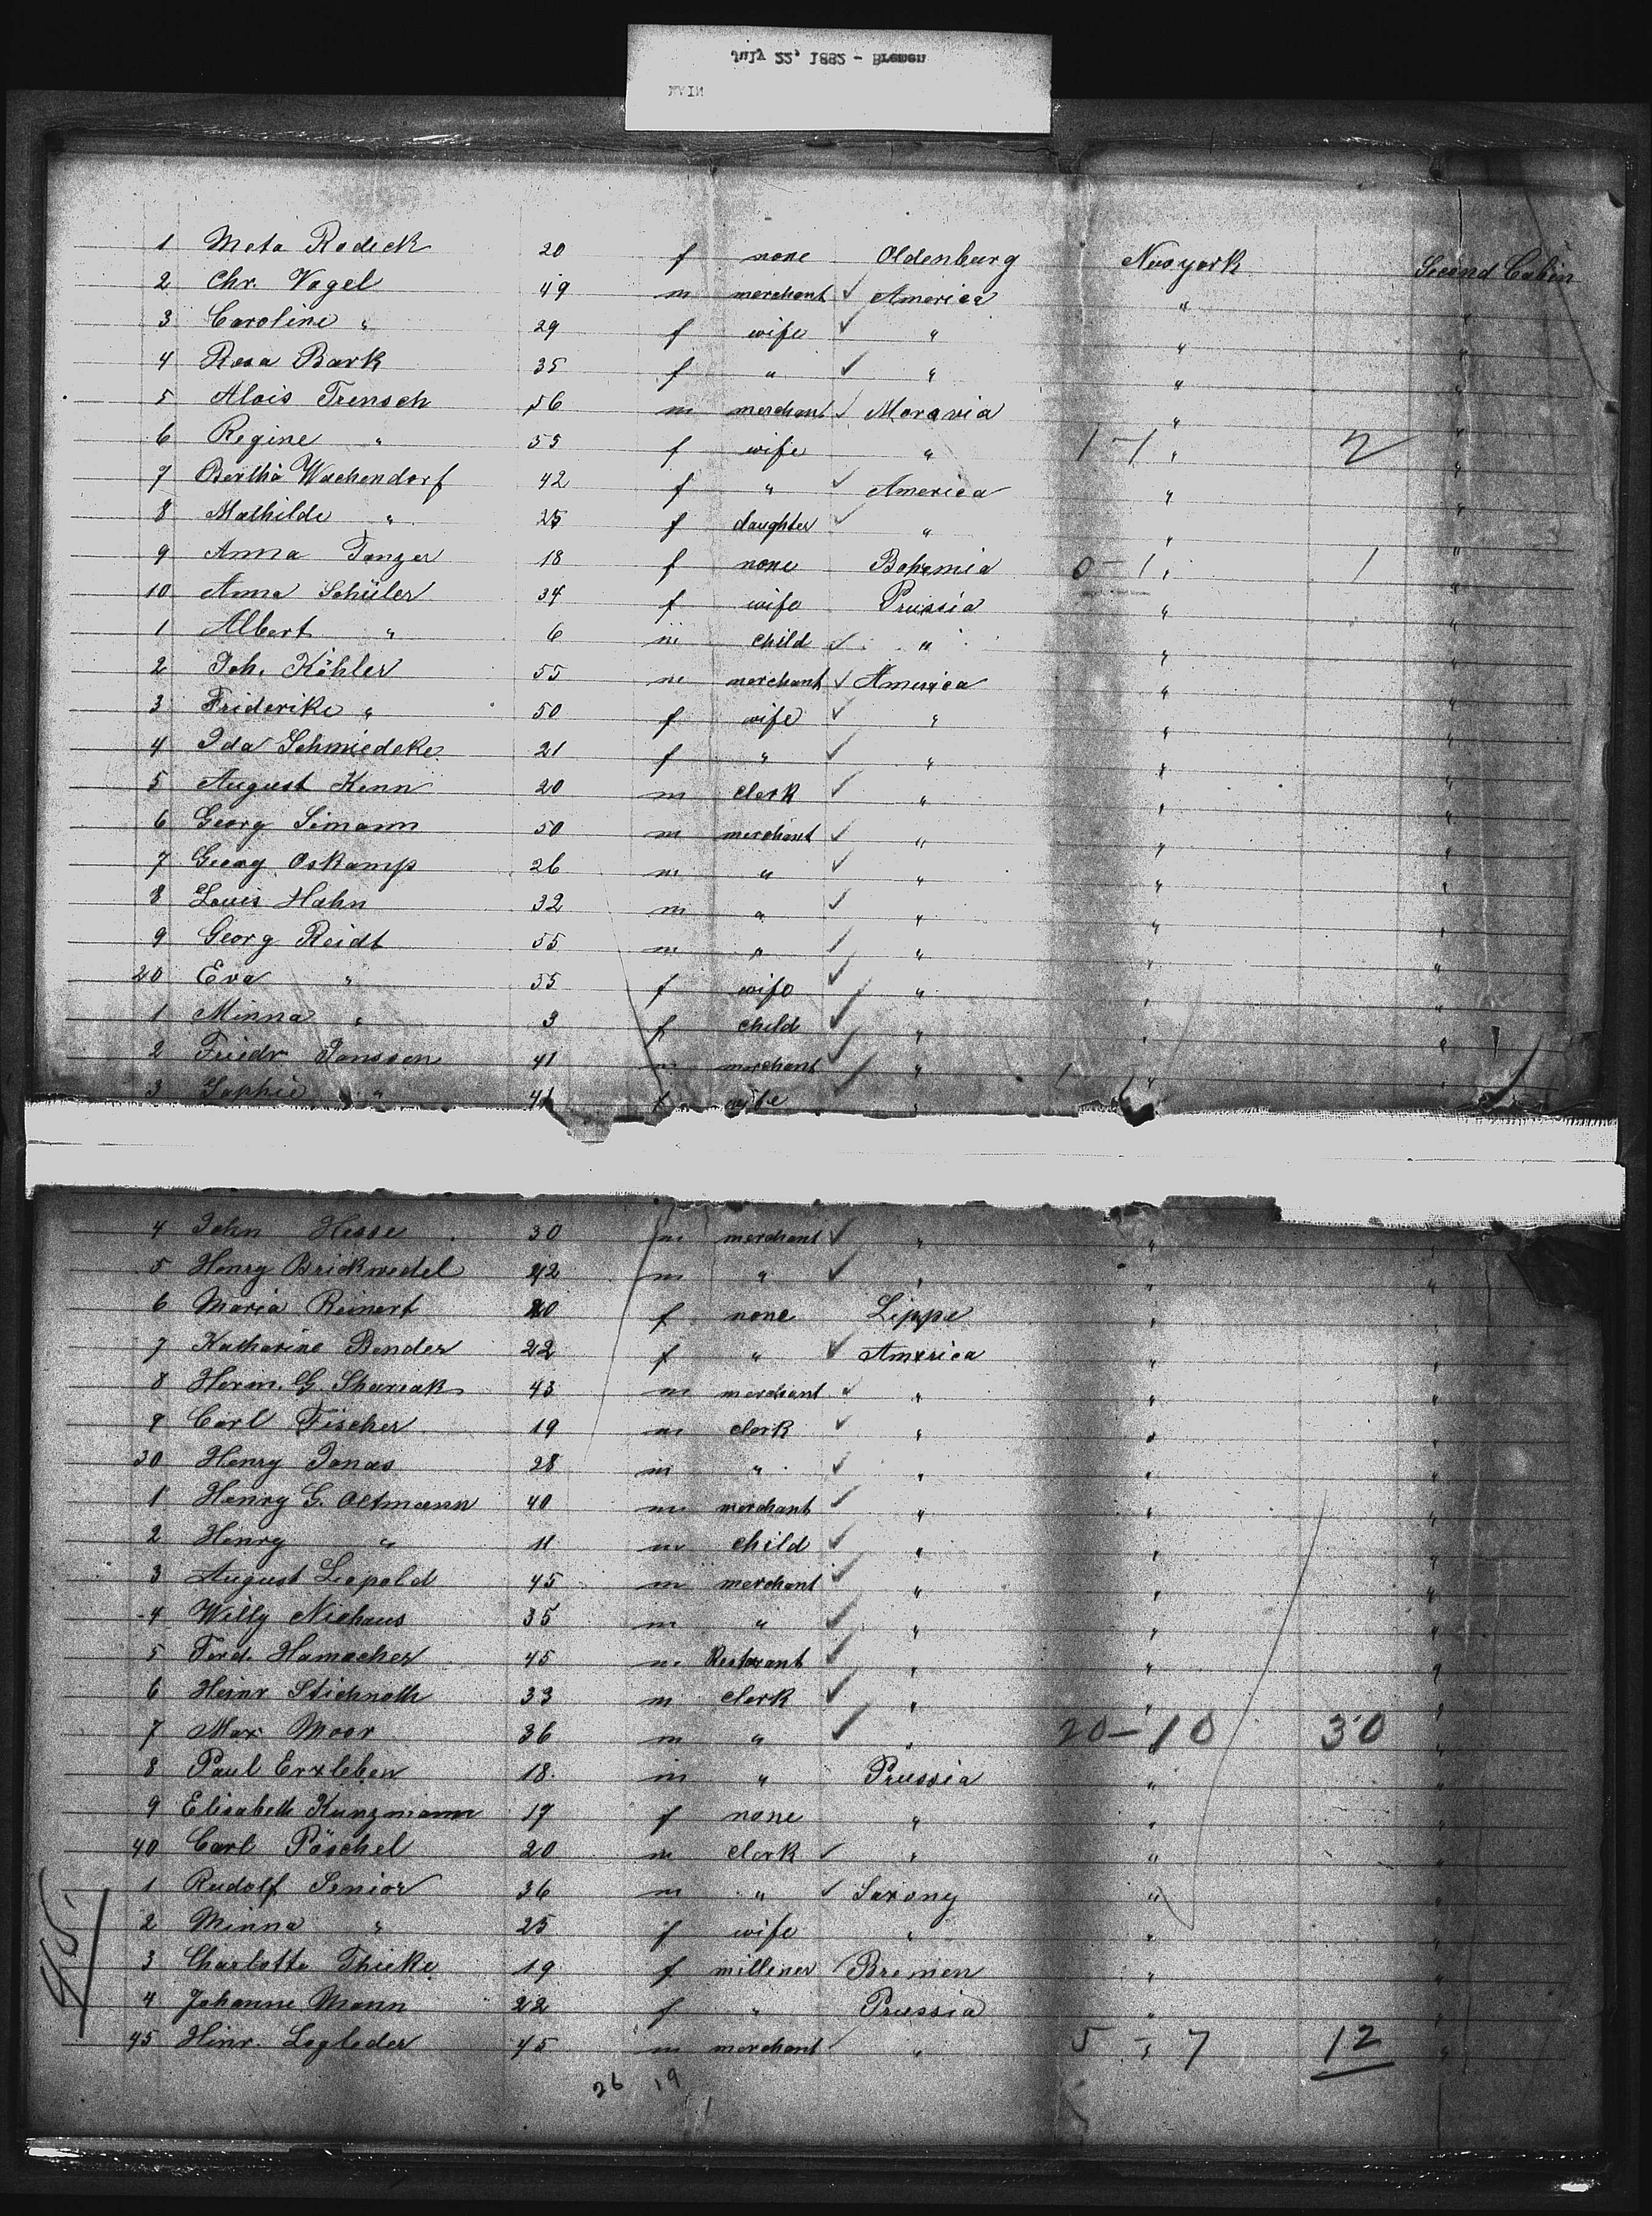 July 22, 1882 - Bremen
MAIN
1 Meta Rodick 20 f none Oldenburg New york Second Cabin
2 Chr. Vogel 49 m merchant ✓ America " "
3 Caroline " 29 f wife ✓ " " "
4 Rosa Bark 35 f " ✓ " " "
5 Alois Trensch 56 m merchant ✓ Moravia " "
6 Regine " 55 f wife " 1-1 " 2 "
7 Bertha Wachendorf 42 f " ✓ America " "
8 Mathilde " 25 f daughter ✓ " " "
9 Anna Tanzer 18 f none Bohemia 0-1 " 1 "
10 Anna Schüler 34 f wife Prussia " "
1 Albert " 6 m child ✓ " " "
2 Joh. Köhler 55 m merchant ✓ America " "
3 Friderike " 50 f wife ✓ " " "
4 Ida Schmiedeke 21 f " ✓ " " "
5 August Kenn 20 m clerk ✓ " " "
6 Georg Simann 50 m merchant ✓ " " "
7 Georg Oskamp 26 m " ✓ " " "
8 Louis Hahn 32 m " ✓ " " "
9 Georg Reidt 55 m " ✓ " " "
20 Eva " 55 f wife ✓ " " "
1 Minna " 3 f child ✓ " " "
2 Friedr Janssen 41 m merchant ✓ " " "
3 Sophie " 41 f wife "
4 John Hesse 30 m merchant ✓ " " "
5 Henry Brickwedel 42 m " ✓ " " "
6 Maria Reinert 20 f none Lippe " "
7 Katharine Bender 22 f " ✓ America " "
8 Herm. G. 43 m merchant ✓ " " "
9 Carl Fischer 19 m clerk ✓ " " "
30 Henry Jonas 28 m " ✓ " " "
1 Henry G. Oltmann 40 m merchant ✓ " " "
2 Henry " 11 m child ✓ " " "
3 August Lepold 45 m merchant ✓ " " "
4 Willy Niehaus 35 m " ✓ " " "
5 Ferd. Hamacher 45 m Restorant ✓ " " "
6 Heinr Stichnoth 33 m clerk ✓ " " "
7 Max Moor 36 m " ✓ " 20-10 " 30 "
8 Paul Erxleben 18 m " Prussia " "
9 Elisabeth Kunzmann 17 f none " " "
40 Carl Pöschel 20 m clerk ✓ " " "
1 Rudolf Senior 36 m " ✓ Saxony " "
2 Minna " 25 f wife " " "
3 Charlotte Thieke 19 f millener Bremen " "
4 Johanne Mann 22 f " Prussia " "
45 Hinr. Legleder 45 m merchant ✓ " 5-7 " 12 "
26 19
45